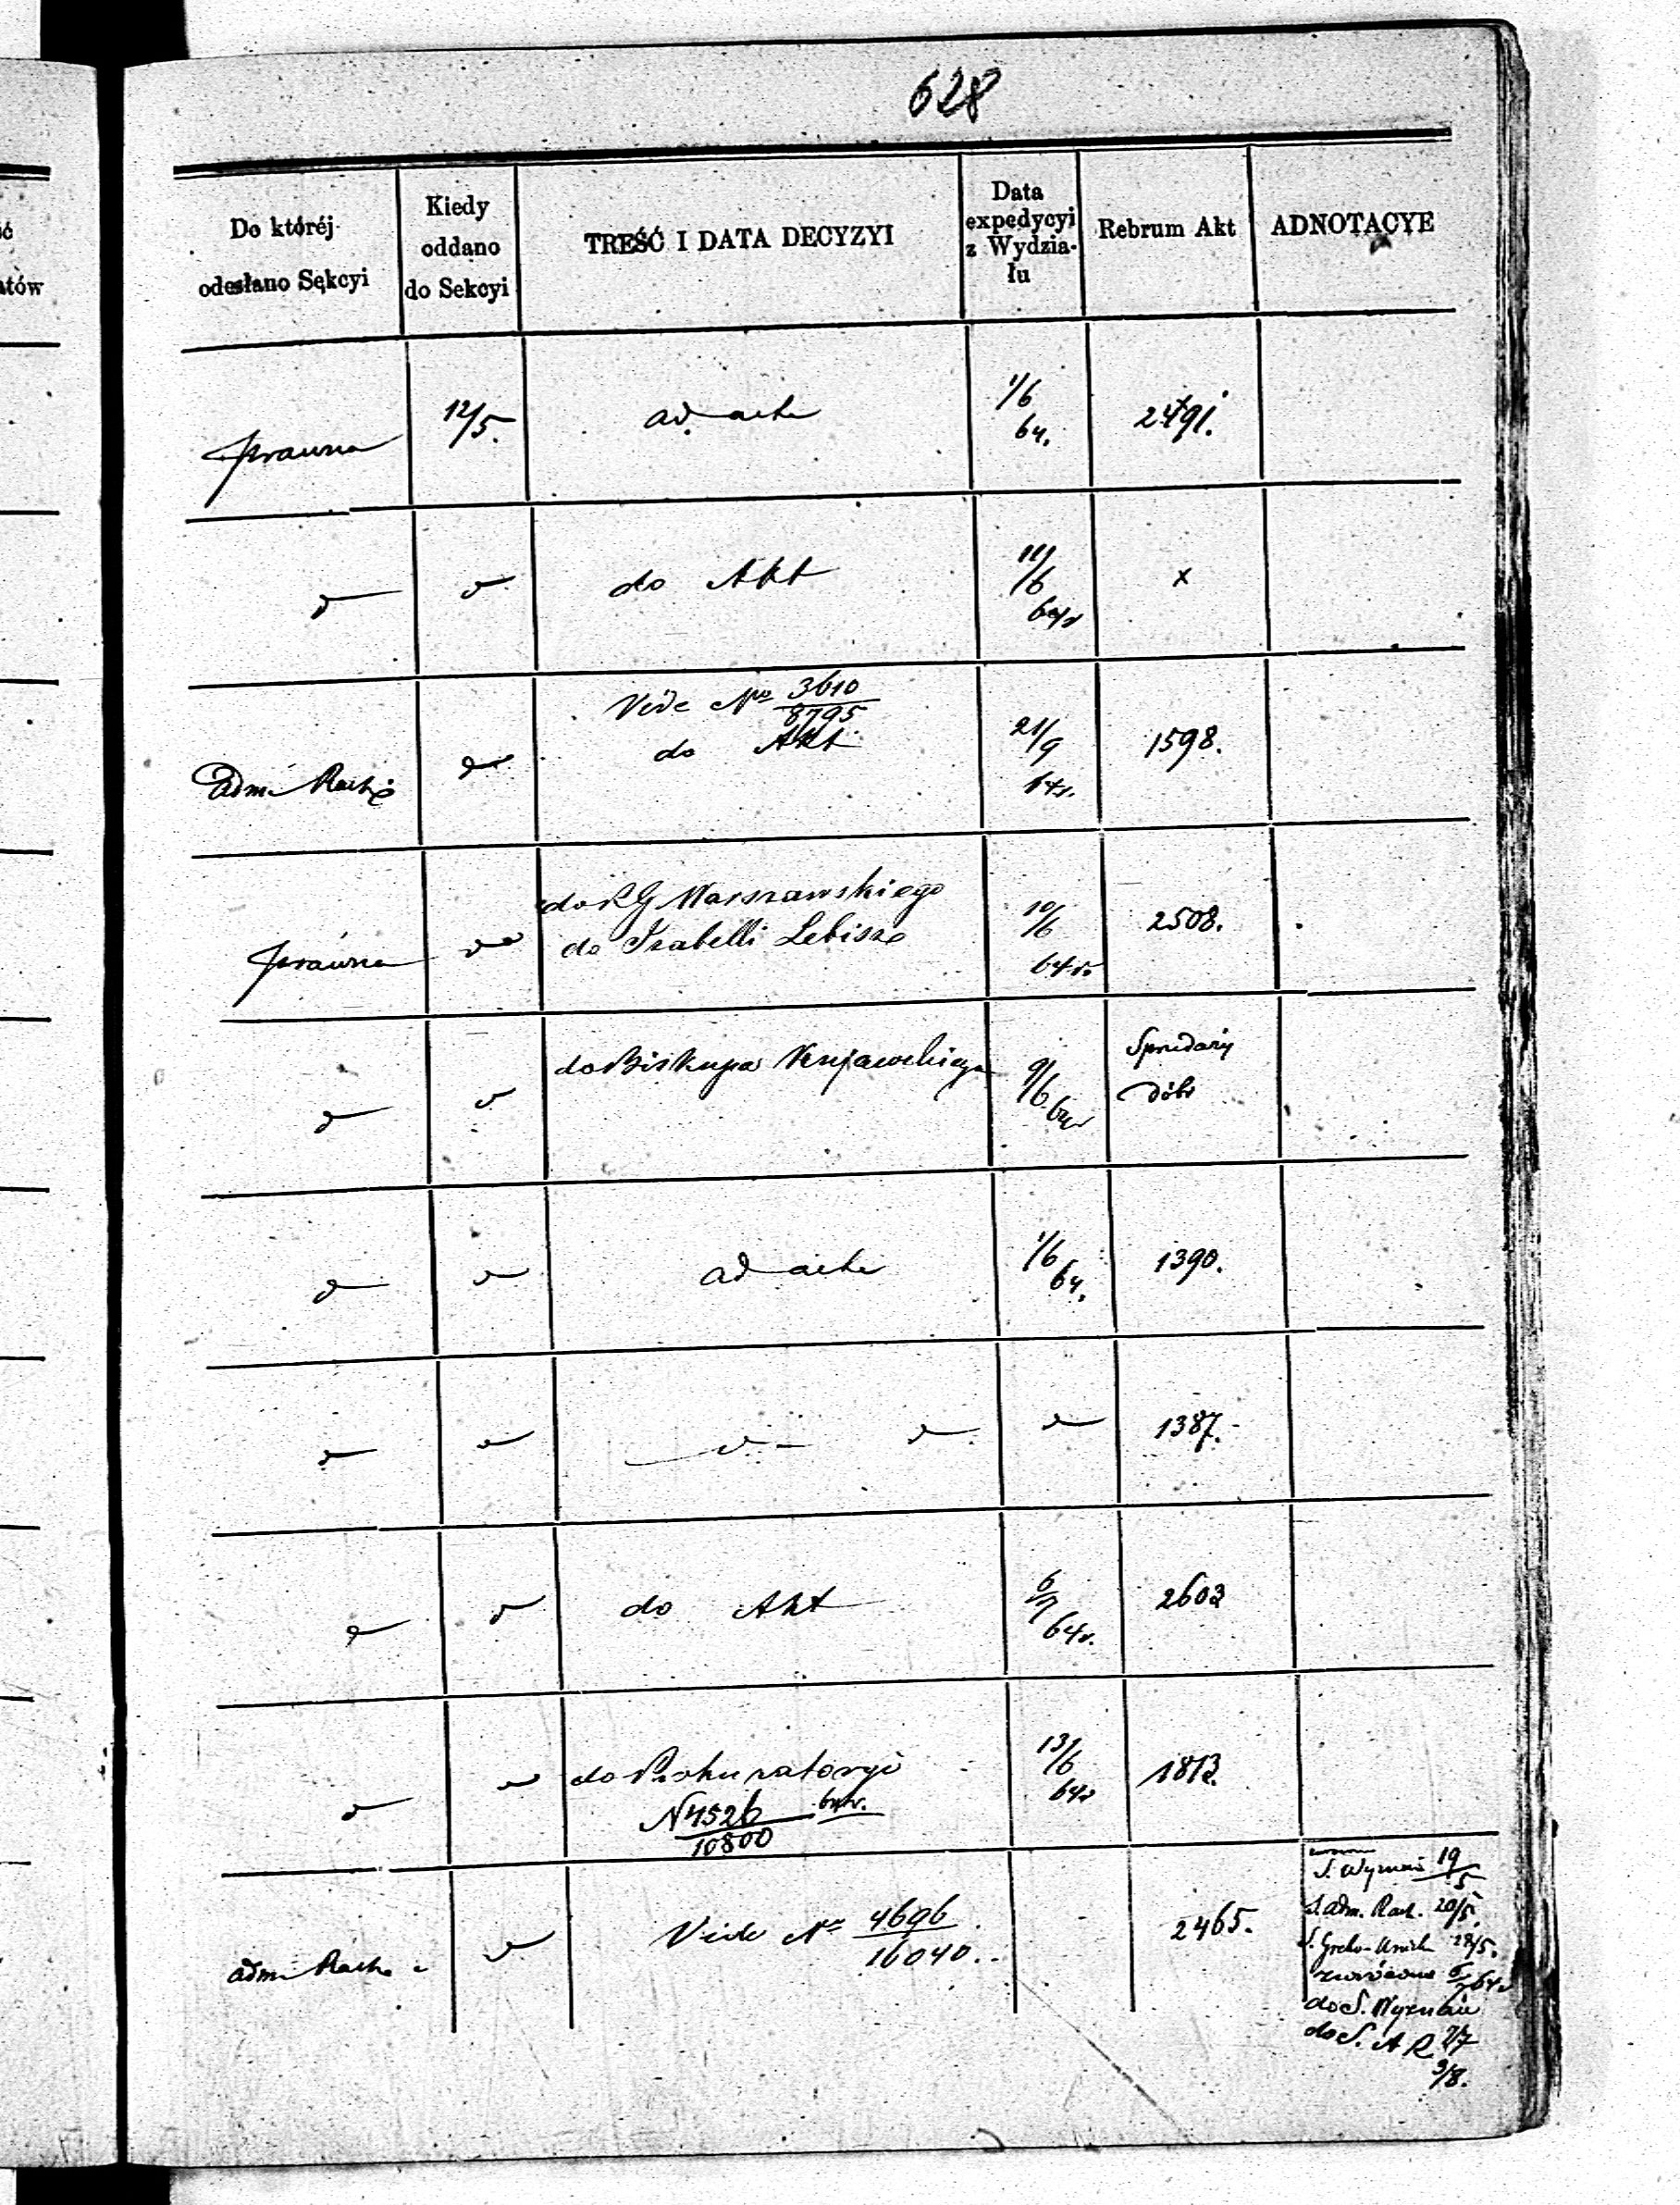 628
Do któréj odesłano Sekcyi
Kiedy oddano do Sekcyi
TREŚĆ I DATA DECYZYI
Data expedycyi z Wydziału
Rebrum Akt
ADNOTACYE
Prawna 12/5. ad acta 1/6 64. 2491.
do Akt 11/6 64r x
Vide No 3610/8795
Adm. Rach. do Akt 21/9 64r. 1598.
do RG Warszawskiego
Prawna do Izabelli Lebisze 10/6 64r. 2508.
do Biskupa Kujawskiego 9/6 64r Sprzedaży
Dóbr
ad acta 1/6 64. 1390.
1387.
do Akt 6/7 64r. 2603
do Prokuratoryi 13/6 64r 1813.
N 4526/10800 64r.
adm. Rach. Vide No 4696/16040. 2465.
S. Wyznań 19/5
S. adm. Rach. 20/5.
S. Greko-Unick 28/5.
zwrócono 6/7 64r
do S. Wyznań
do S. A R 7/7
9/8.
ść
atów